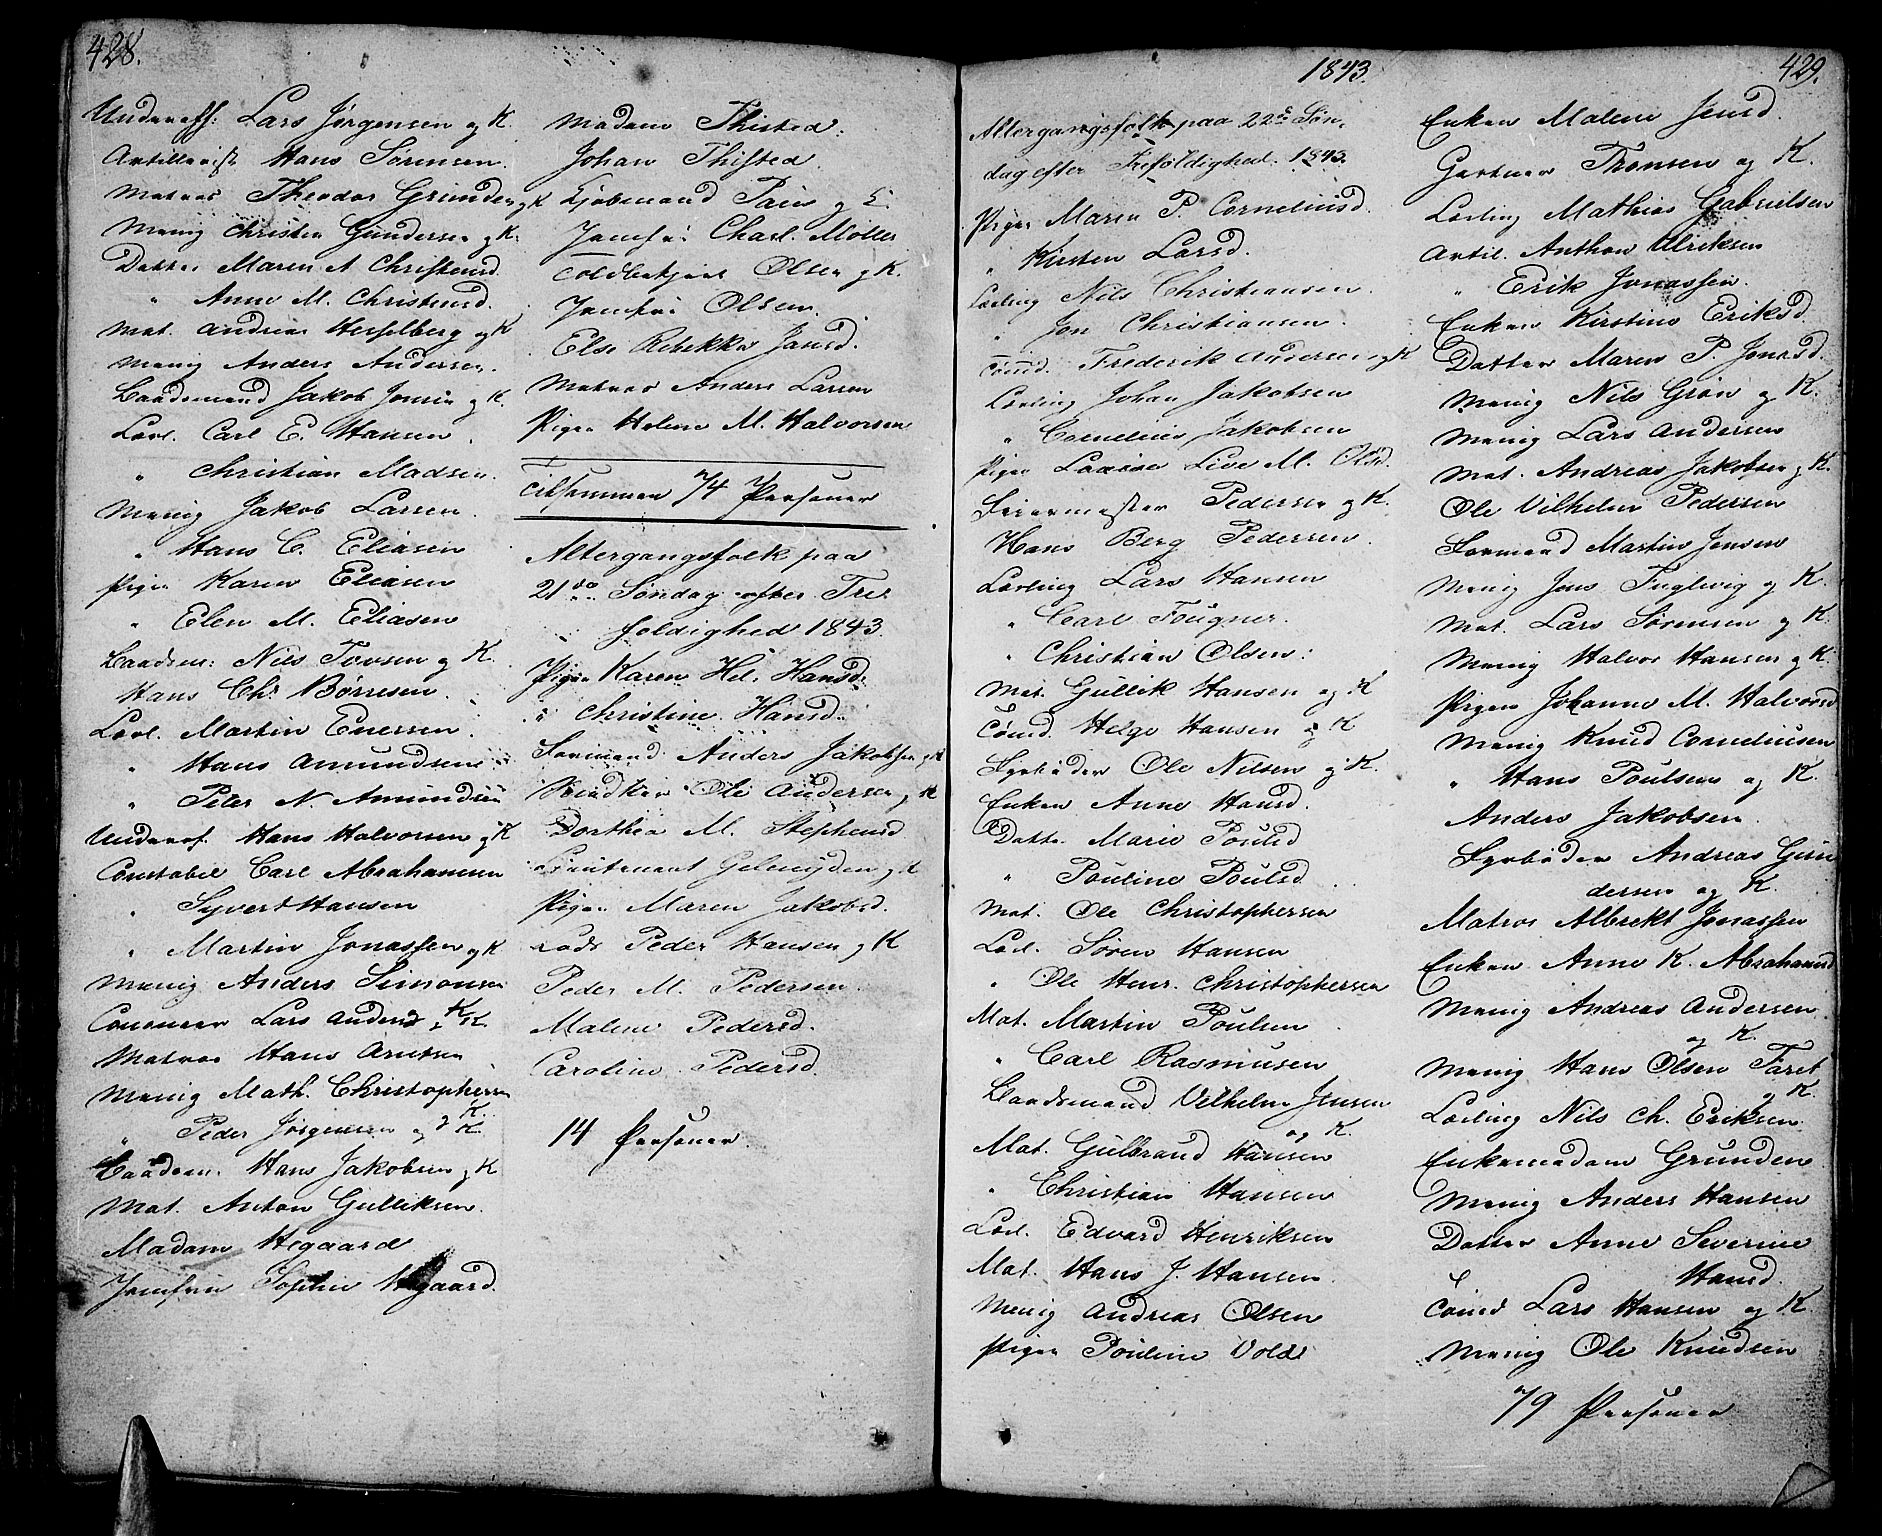 428.
Underoff: Lars Jørgensen og K.
Artillerist Hans Sørensen.
Matros Theodor Grunden og K
Menig Christen Gundersen og K.
Datter Maren A Christensd.
" Anne M. Christensd.
Mat. Andreas Hesselberg og K
Menig Anders Andersen.
Baadsmand Jakob Jonsen og K.
Lærl. Carl E. Hansen.
" Christian Madsen.
Menig Jakob Larsen.
" Hans C. Eliasen
Pigen Karen Eliasen
" Elen M. Eliasen
Baadsm: Nils Tovsen og K.
Hans Chr Børresen.
Lærl. Martin Enersen.
" Hans Amundsen
" Peter N. Amundsen
Underof. Hans Halvorsen og K
Constabel Carl Abrahamsen
" Syvert Hansen
" Martin Jonassen og K
Menig Anders Simonsen
Lars Anders K
Matros Hans Arntsen
Menig Math. Christophersen
" Peder Jørgensen og K.
Baadsm. Hans Jakobsen og K
Mat. Anton Gulliksen.
Madam Hegaard
Jomfrue Sophie Hegaard.
Madam Thisted.
Johan Thisted
Kjøbmand Paus og K.
Jomfru Charl. Møller
Toldbetjent Olsen og K.
Jomfru Olsen.
Else Rebekka Jansd.
Matros Anders Larsen
Pigen Helene M. Halvorsen
Tilsammen 74 Personer
Altergangsfolk paa
21de Søndag efter Tre
foldighed 1843.
Pigen Karen Hel. Hansd.
" Christine Hansd.
Formand Anders Jakobsen og K
Ole Andersen og K
Dorthea M. Stephensd
Lieutenant Gelmuyden og K
Pigen Maren Jakobsd.
Lods Peder Hansen og K
Peder M. Pedersen.
Malene Pedersd.
Caroline Pedersd.
14 Personer.
1843.
429.
Altergangsfolk paa 22de Søn
dag efter Trefoldighed. 1843.
Pigen Maren P. Corneliusd.
" Kirsten Larsd.
Lærling Nils Christiansen.
" Jon Christiansen.
Tømd. Frederik Andersen og K
Lærling Johan Jakobsen
" Cornelius Jakobsen
Pigen Lovise Live M. Olsd.
Feiermester Pedersen og K.
Hans Berg Pedersen.
Lærling Lars Hansen
" Carl Fougner.
" Christian Olsen.
Mat. Gullik Hansen og K
Tømd. Helge Hansen og K
Fyrbøder Ole Nilsen og K.
Enken Anne Hansd.
Datte. Marie Poulsd
" Pouline Poulsd
Mat. Ole Christophersen
Lærl. Søren Hansen
" Ole Henr. Christophersen
Mat. Martin Poulsen
" Carl Rasmusen
Baadsmand Vilhelm Jensen
og K.
Mat. Gulbrand Hansen
" Christian Hansen
Lærl. Edvard Henriksen
Mat. Hans J. Hansen
Menig Andreas Olsen
Pigen Pouline Vold
Enken Malene Jensd.
Gartner Thonsen og K.
Lærling Mathias Gabrielsen
Artil. Anthon Ulriksen
" Erik Jonassen.
Enken Kirstine Eriksd
Datter Maren P. Jonasd.
Menig Nils Grøn og K.
Menig Lars Andersen
Mat. Andreas Jakobsen og K.
Ole Vilhelm Pedersen
Formand Martin Jensen
Menig Jens Fuglevig og K
Mat. Lars Sørensen og K
Menig Halvor Hansen og K
Pigen Johanne M. Halvorsd
Menig Knud Corneliusen
" Hans Poulsen og K.
Anders Jakobsen.
Fyrbøder Andreas Gun
dersen og K.
Matros Albrekt Jonassen
Enken Anne K. Abrahamsd
Menig Andreas Andersen
og K.
Menig Hans Olsen Faret
og K
Lærling Nils Ch. Eriksen.
Enkemadam Grunden
Menig Anders Hansen
Datter Anne Severine
Hansd.
Tømd Lars Hansen og K.
Menig Ole Knudsen
79 Personer